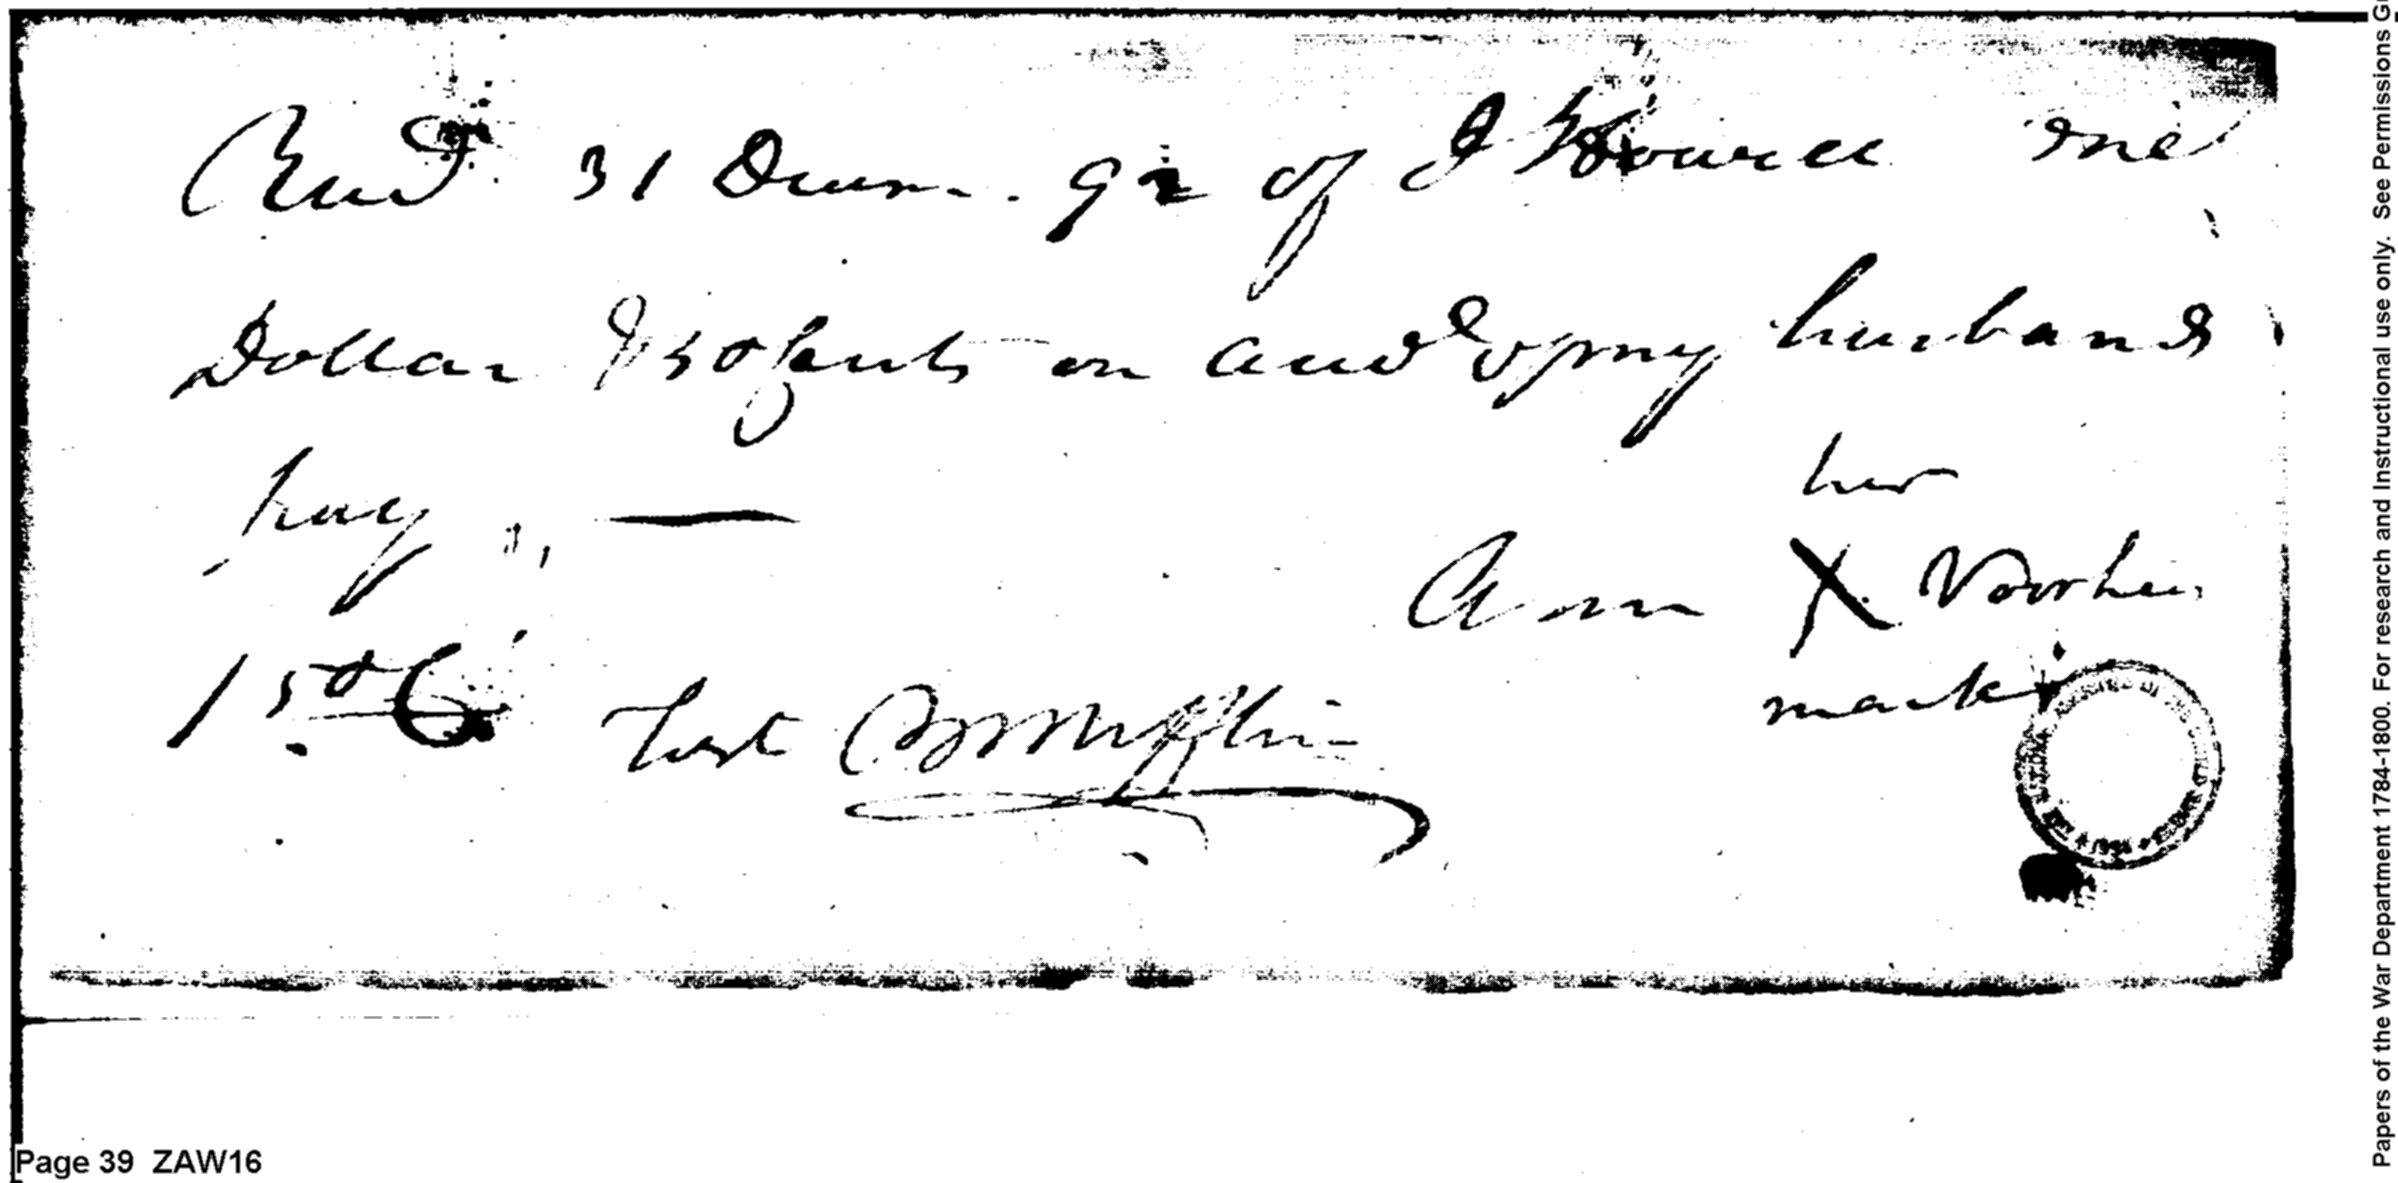 Recd 31 Decem. 92 of J Howell one
Dollar & 50 Cents on acct of my husbands
pay, —
her
Ann X Voorhees
mark
1 50
Test B Mifflin
Page 39 ZAW16
Papers of the War Department 1784-1800. For research and Instructional use only. See Permissions